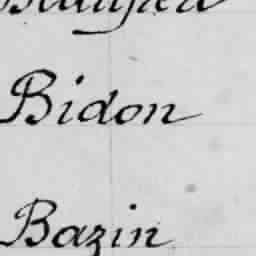 Bidon
Bazin